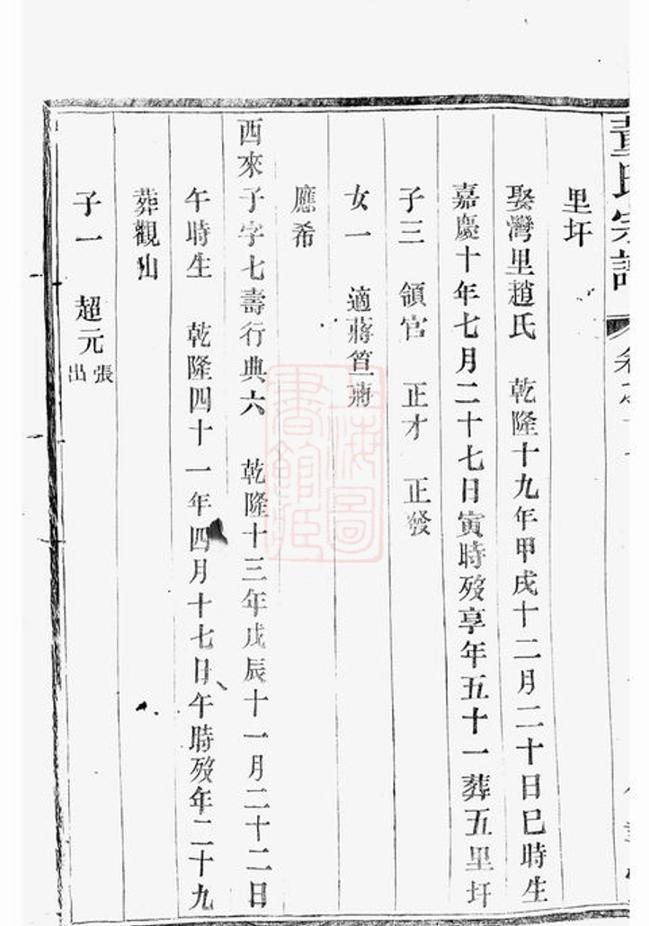 氏宗譜
里圩
娶灣里趙氏 乾隆十九年甲戌十二月二十日巳時生
嘉慶十年七月二十七日寅時歿享年五十一葬五里圩
子三 領官 正才 正發
女一 適蔣笪蔣
應希
西來子字七壽行典六 乾隆十三年戊辰十一月二十二日
午時生 乾隆四十一年四月十七日午時歿年二十九
葬觀山
子一 超元張出
上海圖書館藏